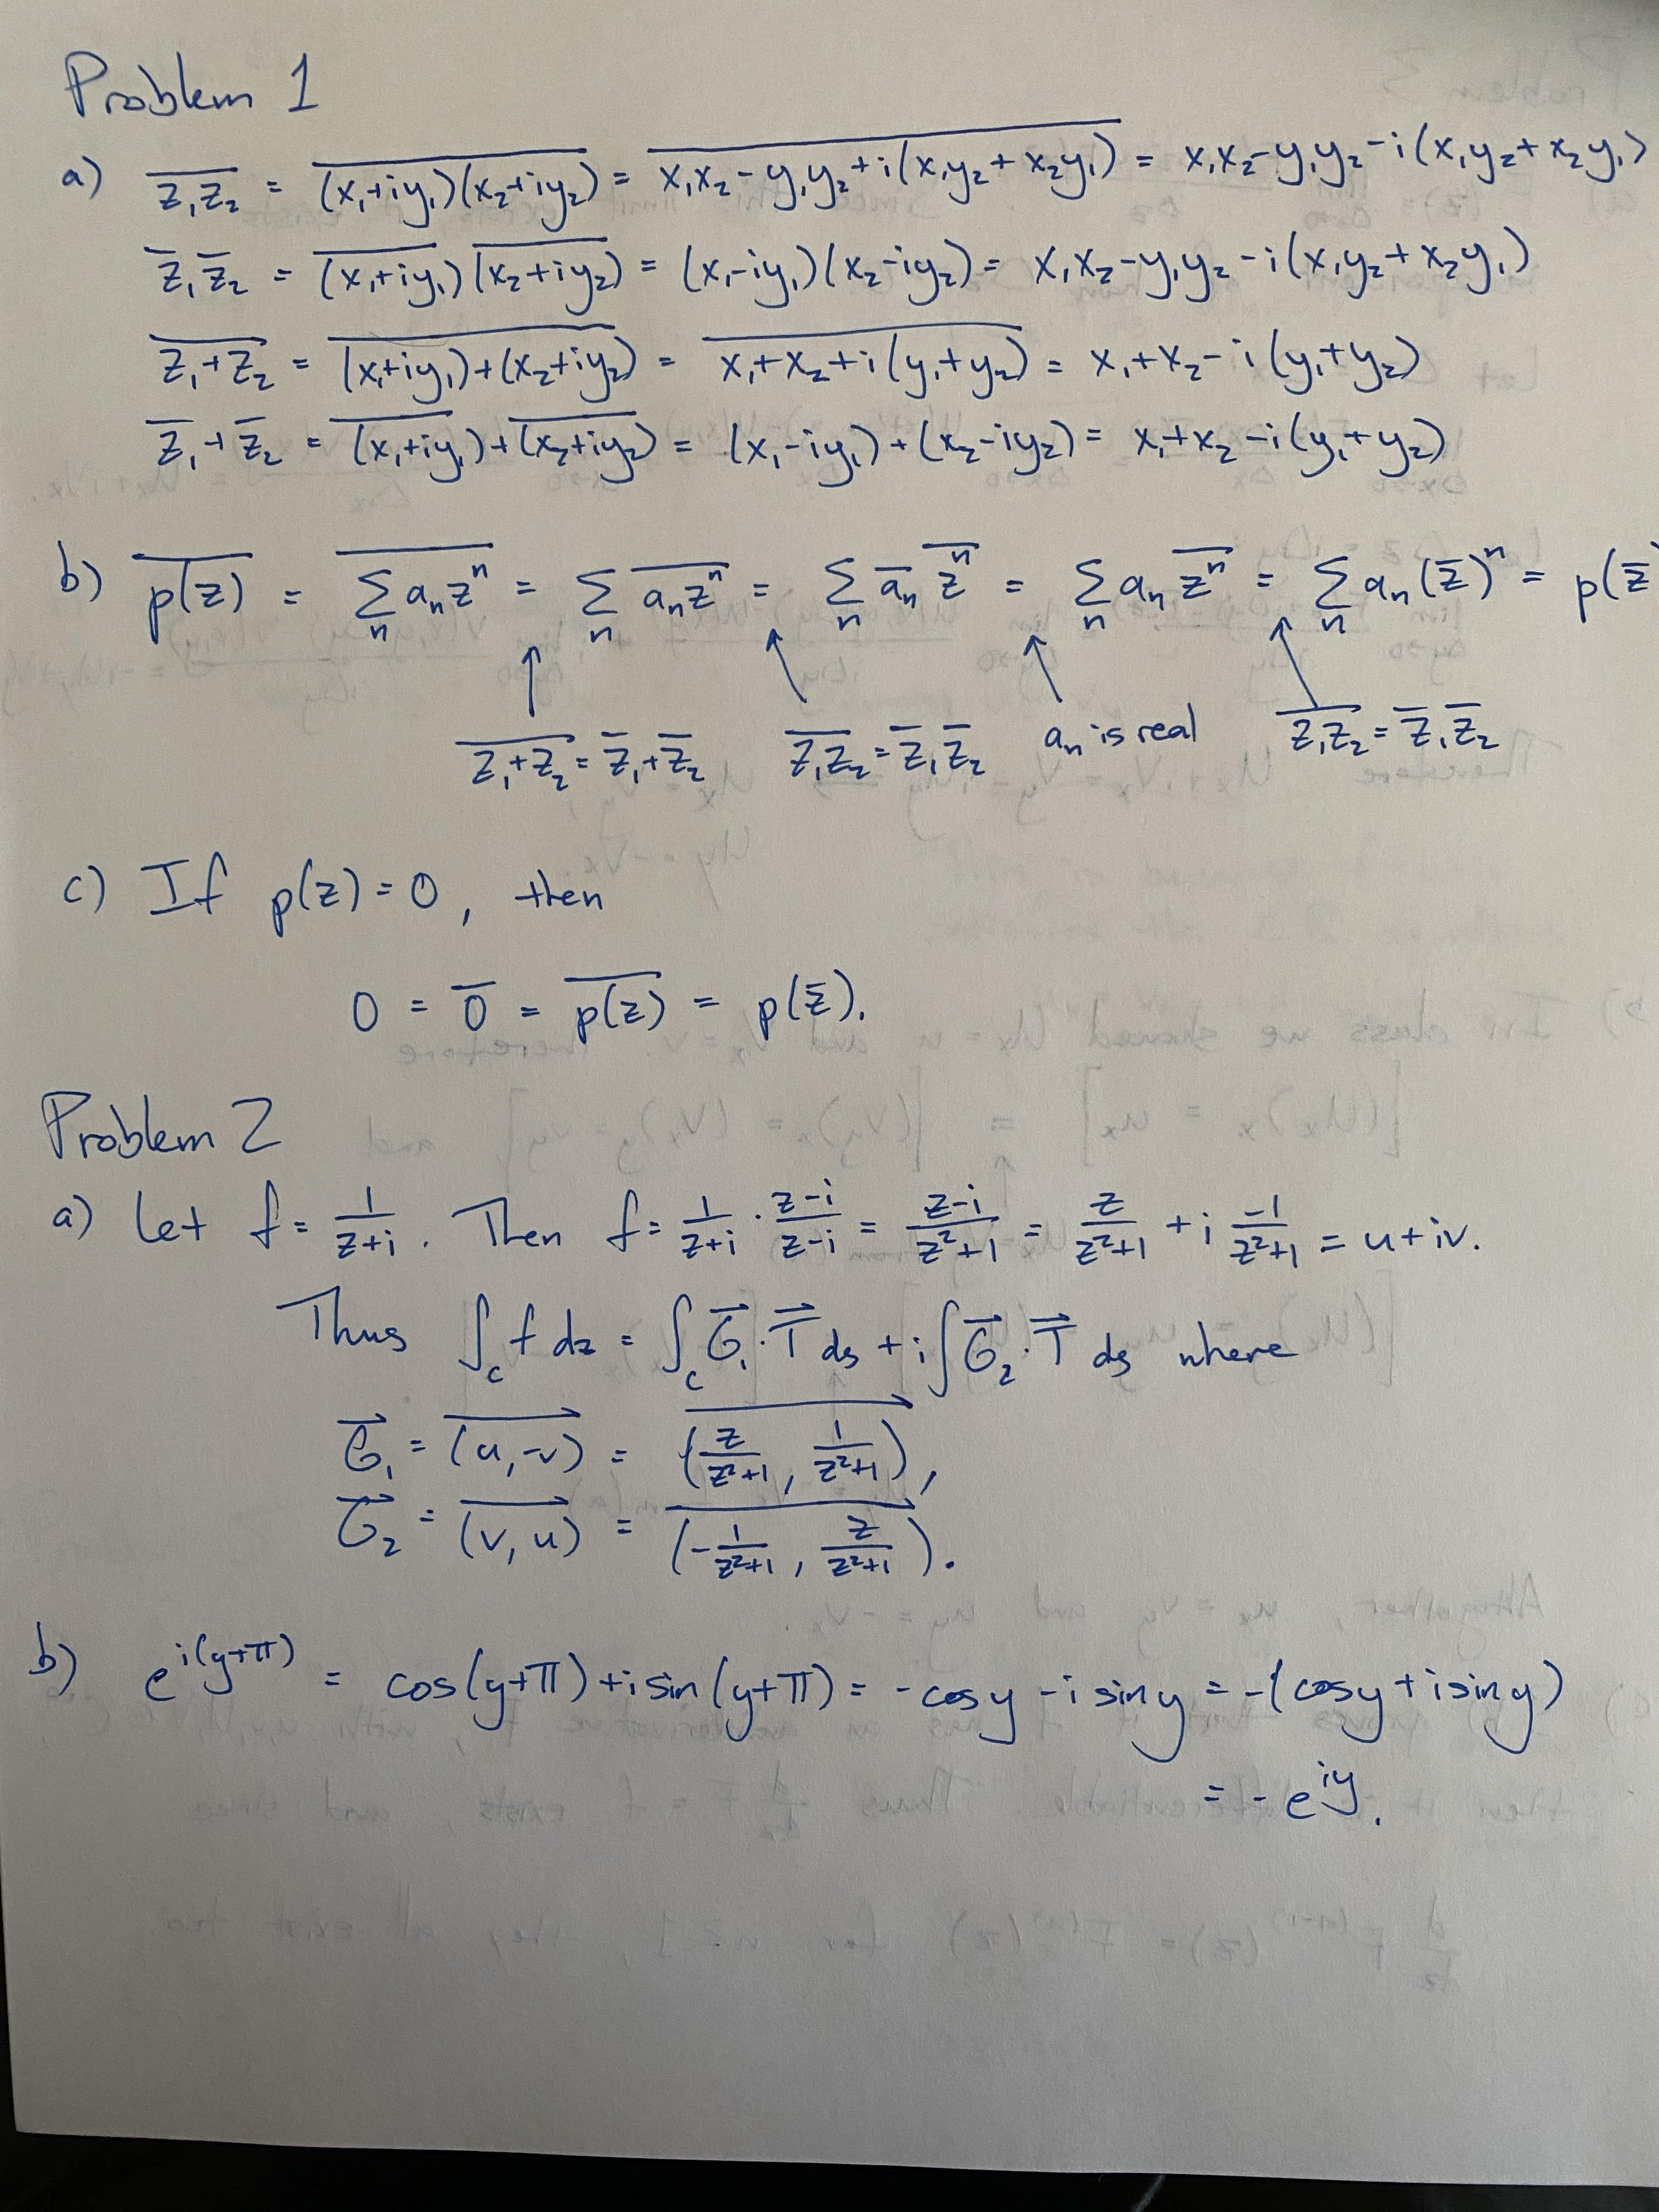 Problem 1
a) \overline{z₁z₂} = \overline{(x₁+iy₁)(x₂+iy₂)} = \overline{x₁x₂-y₁y₂+i(x₁y₂+x₂y₁)} = x₁x₂-y₁y₂-i(x₁y₂+x₂y₁)
\overline{z₁}\overline{z₂} = \overline{(x₁+iy₁)}\overline{(x₂+iy₂)} = (x₁-iy₁)(x₂-iy₂) = x₁x₂-y₁y₂-i(x₁y₂+x₂y₁)
\overline{z₁+z₂} = \overline{(x₁+iy₁)+(x₂+iy₂)} = \overline{x₁+x₂+i(y₁+y₂)} = x₁+x₂-i(y₁+y₂)
\overline{z₁}+\overline{z₂} = \overline{(x₁+iy₁)}+\overline{(x₂+iy₂)} = (x₁-iy₁)+(x₂-iy₂) = x₁+x₂-i(y₁+y₂)
b) \overline{p(z)} = \overline{∑_n a_n z^n} = ∑_n \overline{a_n z^n} = ∑_n \overline{a_n} \overline{z^n} = ∑_n a_n \overline{z^n} = ∑_n a_n (\overline{z})^n = p(\overline{z}
\overline{z₁+z₂} = \overline{z₁}+\overline{z₂} \overline{z₁z₂} = \overline{z₁}\overline{z₂} a_n is real \overline{z₁z₂} = \overline{z₁}\overline{z₂}
c) If p(z) = 0, then
0 = \overline{0} = \overline{p(z)} = p(\overline{z}).
Problem 2
a) Let f = \frac{1}{z+i}. Then f = \frac{1}{z+i} · \frac{z-i}{z-i} = \frac{z-i}{z²+1} = \frac{z}{z²+1} + i \frac{-1}{z²+1} = u+iv.
Thus ∫_c f dz = ∫_c \vec{G₁}·\vec{T} ds + i∫ \vec{G₂}·\vec{T} ds where
\vec{G₁} = \overrightarrow{(u,-v)} = \overrightarrow{(\frac{z}{z²+1}, \frac{1}{z²+1})},
\vec{G₂} = \overrightarrow{(v,u)} = \overrightarrow{(-\frac{1}{z²+1}, \frac{z}{z²+1})}.
b) e^{i(y+π)} = cos(y+π)+i sin(y+π) = -cos y - i sin y = -(cos y + i sin y)
= -e^{iy}.